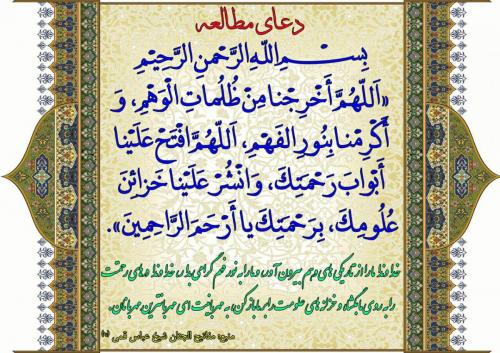 دعای مطالعه
بِسْمِ اللهِ الرَّحْمنِ الرَّحِيْمِ
«اَللّهُمَّ أَخْرِجْنا مِنْ ظُلُماتِ الْوَهْمِ، وَ
أَكْرِمْنا بِنُورِ الْفَهْمِ، اَللّهُمَّ افْتَحْ عَلَيْنا
أَبْوابَ رَحْمَتِكَ، وَانْشُرْ عَلَيْنا خَزائِنَ
عُلُومِكَ، بِرَحْمَتِكَ يا أَرْحَمَ الرَّاحِمِينَ».
خداوندا ما را از تاریکی های وهم بیرون آور، و ما را به نور فهم گرامی بدار، خداوندا درهای رحمتت
را به روی ما بگشا، و خزانه های علومت را بر ما باز کن، به مهربانیت ای مهربانترین مهربانان.
منبع: مفاتیح الجنان شیخ عباس قمی